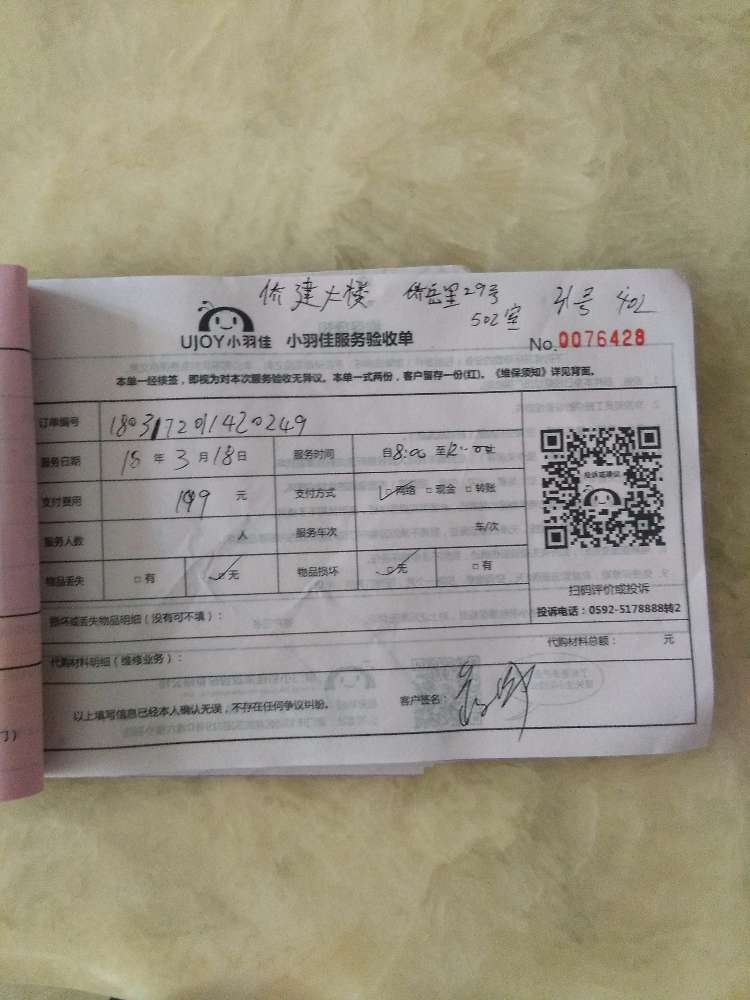 侨建大楼 侨岳里29号 31号 402
502室
UJOY小羽佳 小羽佳服务验收单 No.0076428
本单一经核签，即视为对本次服务验收无异议。本单一式两份，客户留存一份(红)。《维保须知》详见背面。
订单编号 180317201420249
服务日期 18 年 3 月 18 日 服务时间 自 8:00 至 12:00 止
支付费用 199 元 支付方式 ☑网络 □现金 □转账
服务人数 人 服务车次 车/次
物品丢失 □有 ☑无 物品损坏 ☑无 □有
投诉或建议
扫码评价或投诉
投诉电话：0592-5178888转2
损坏或丢失物品明细（没有可不填）：
代购材料明细（维修业务）： 代购材料总额： 元
以上填写信息已经本人确认无误，不存在任何争议纠纷。 客户签名：